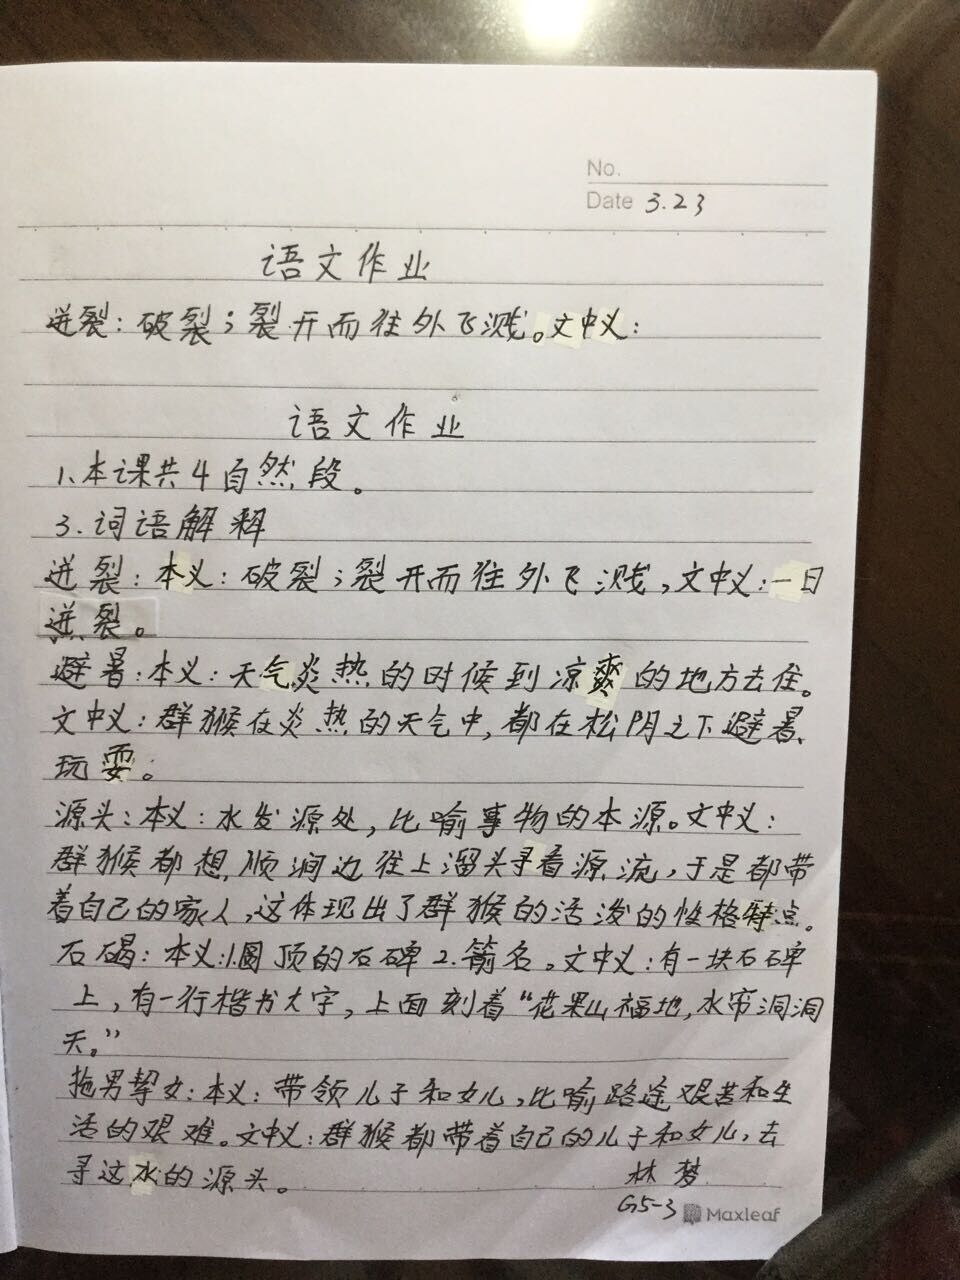 No.
Date 3.23
语文作业
迸裂：破裂；裂开而往外飞溅。文中义：
语文作业
1、本课共4自然段。
3.词语解释
迸裂：本义：破裂；裂开而往外飞溅，文中义：一日
迸裂。
避暑：本义：天气炎热的时候到凉爽的地方去住。
文中义：群猴在炎热的天气中，都在松阴之下避暑
玩耍。
源头：本义：水发源处，比喻事物的本源。文中义：
群猴都想顺涧边往上溜头寻看源流，于是都带
着自己的家人，这体现出了群猴的活泼的性格特点。
石碣：本义：1.圆顶的石碑2.箭名。文中义：有一块石碑
上，有一行楷书大字，上面刻着“花果山福地，水帘洞洞
天。”
拖男挈女：本义：带领儿子和女儿，比喻路途艰苦和生
活的艰难。文中义：群猴都带着自己的儿子和女儿，去
寻这水的源头。
林梦
G5-3
Maxleaf